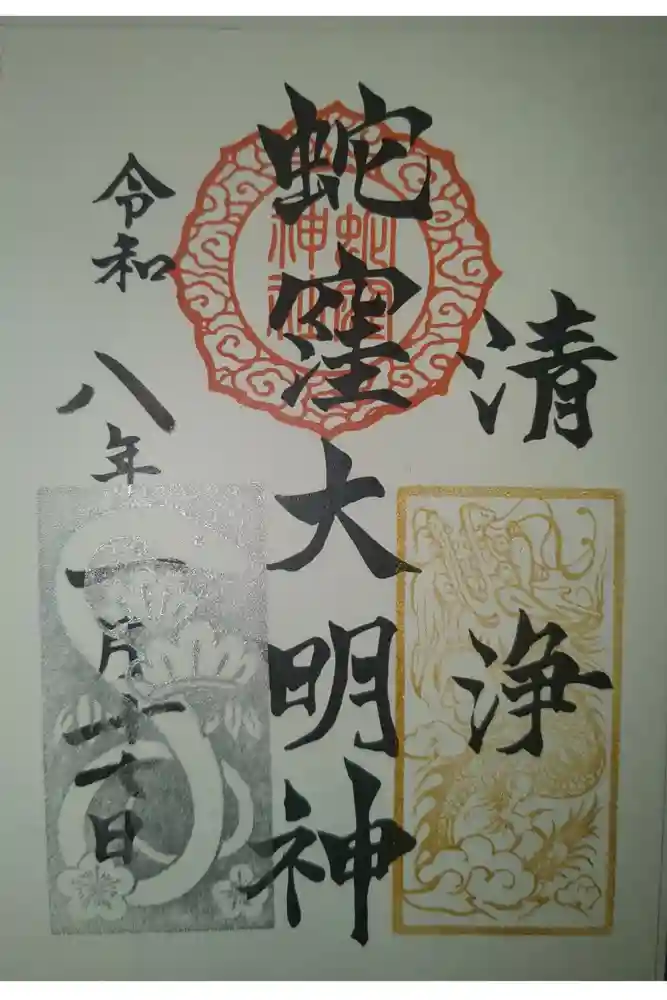 清浄
蛇窪大明神
蛇窪
神社
令和八年一月 日